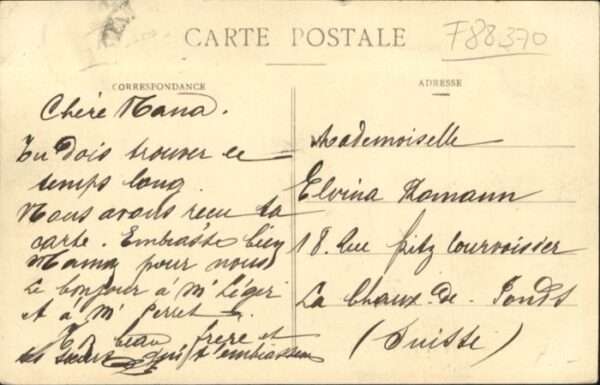 CARTE POSTALE
F88370
CORRESPONDANCE
ADRESSE
Chère Nana.
Tu dois trouver le
temps long.
Nous avons reçu ta
carte. Embrasse bien
Mama pour nous
Le bonjour à Mr Léger
et à Mr Perret.
Ton beau frère et
ta sœur qui t'embrassent
Mademoiselle
Elvina Homann
18. Rue fritz Courvoisier
La Chaux-de-Fonds
(Suisse)